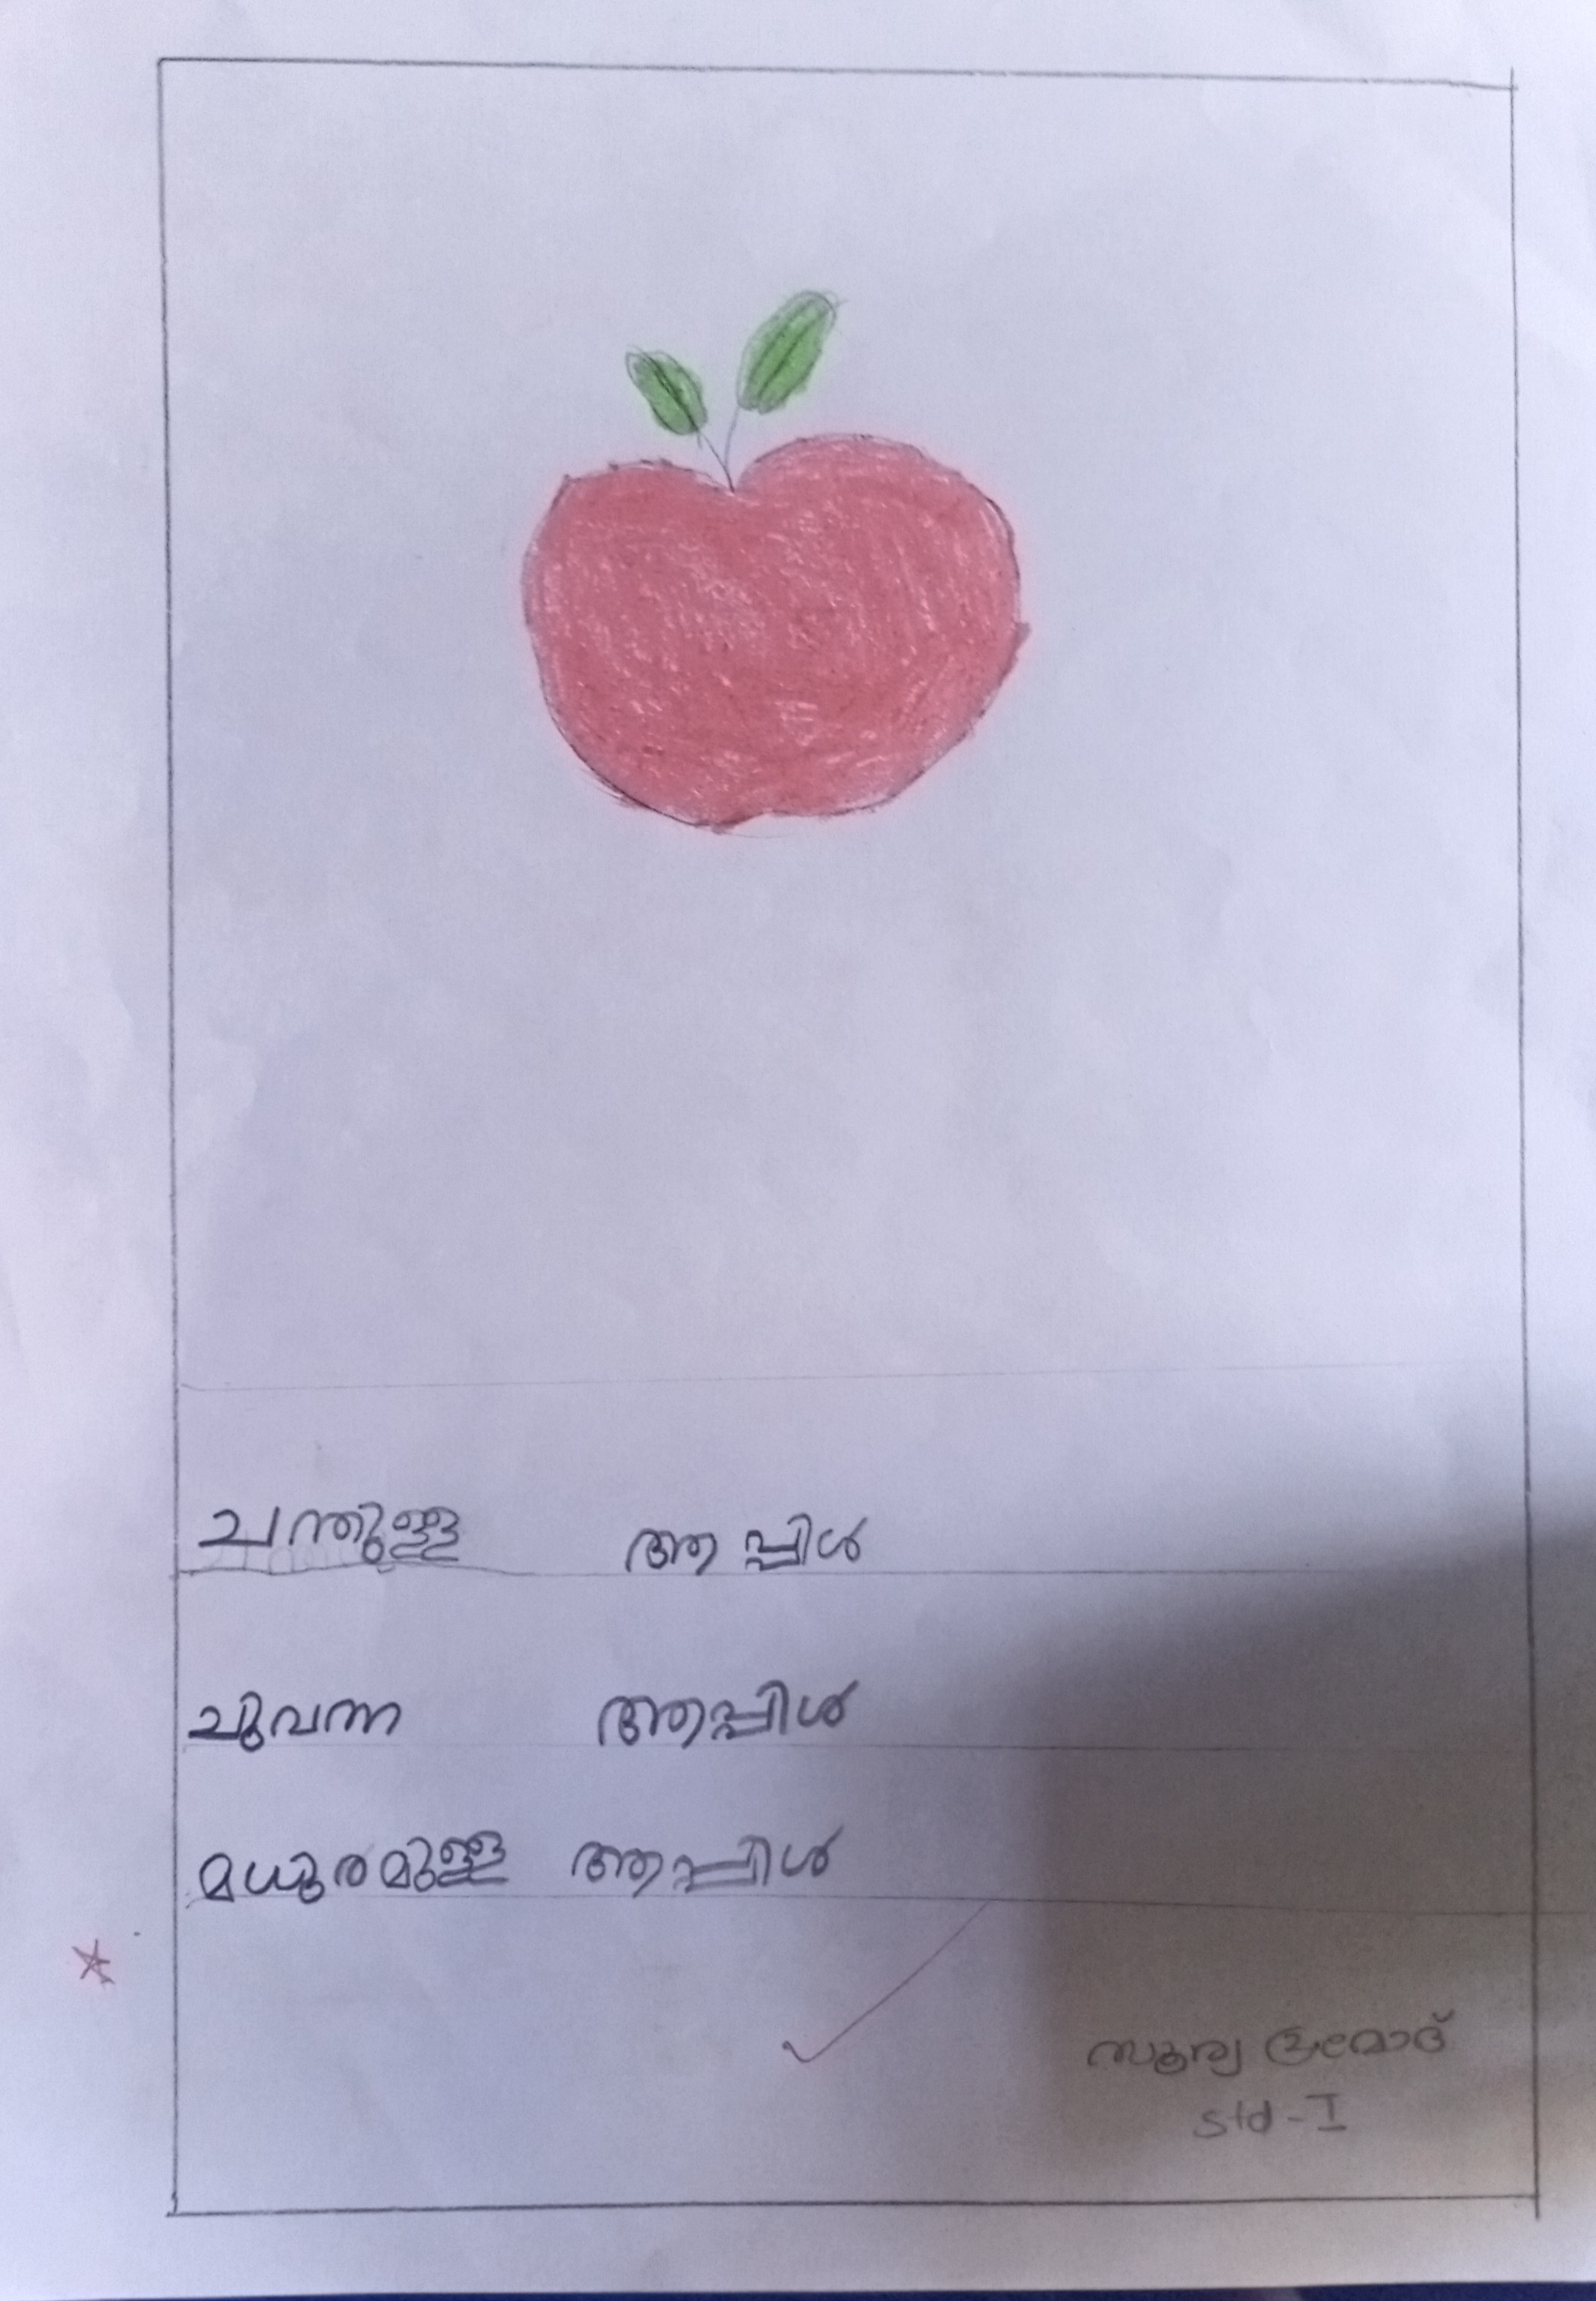 ചന്തുള്ള ആപ്പിൾ
ചുവന്ന ആപ്പിൾ
മധുരമുള്ള ആപ്പിൾ
സൂര്യ പ്രമോദ്
std-I